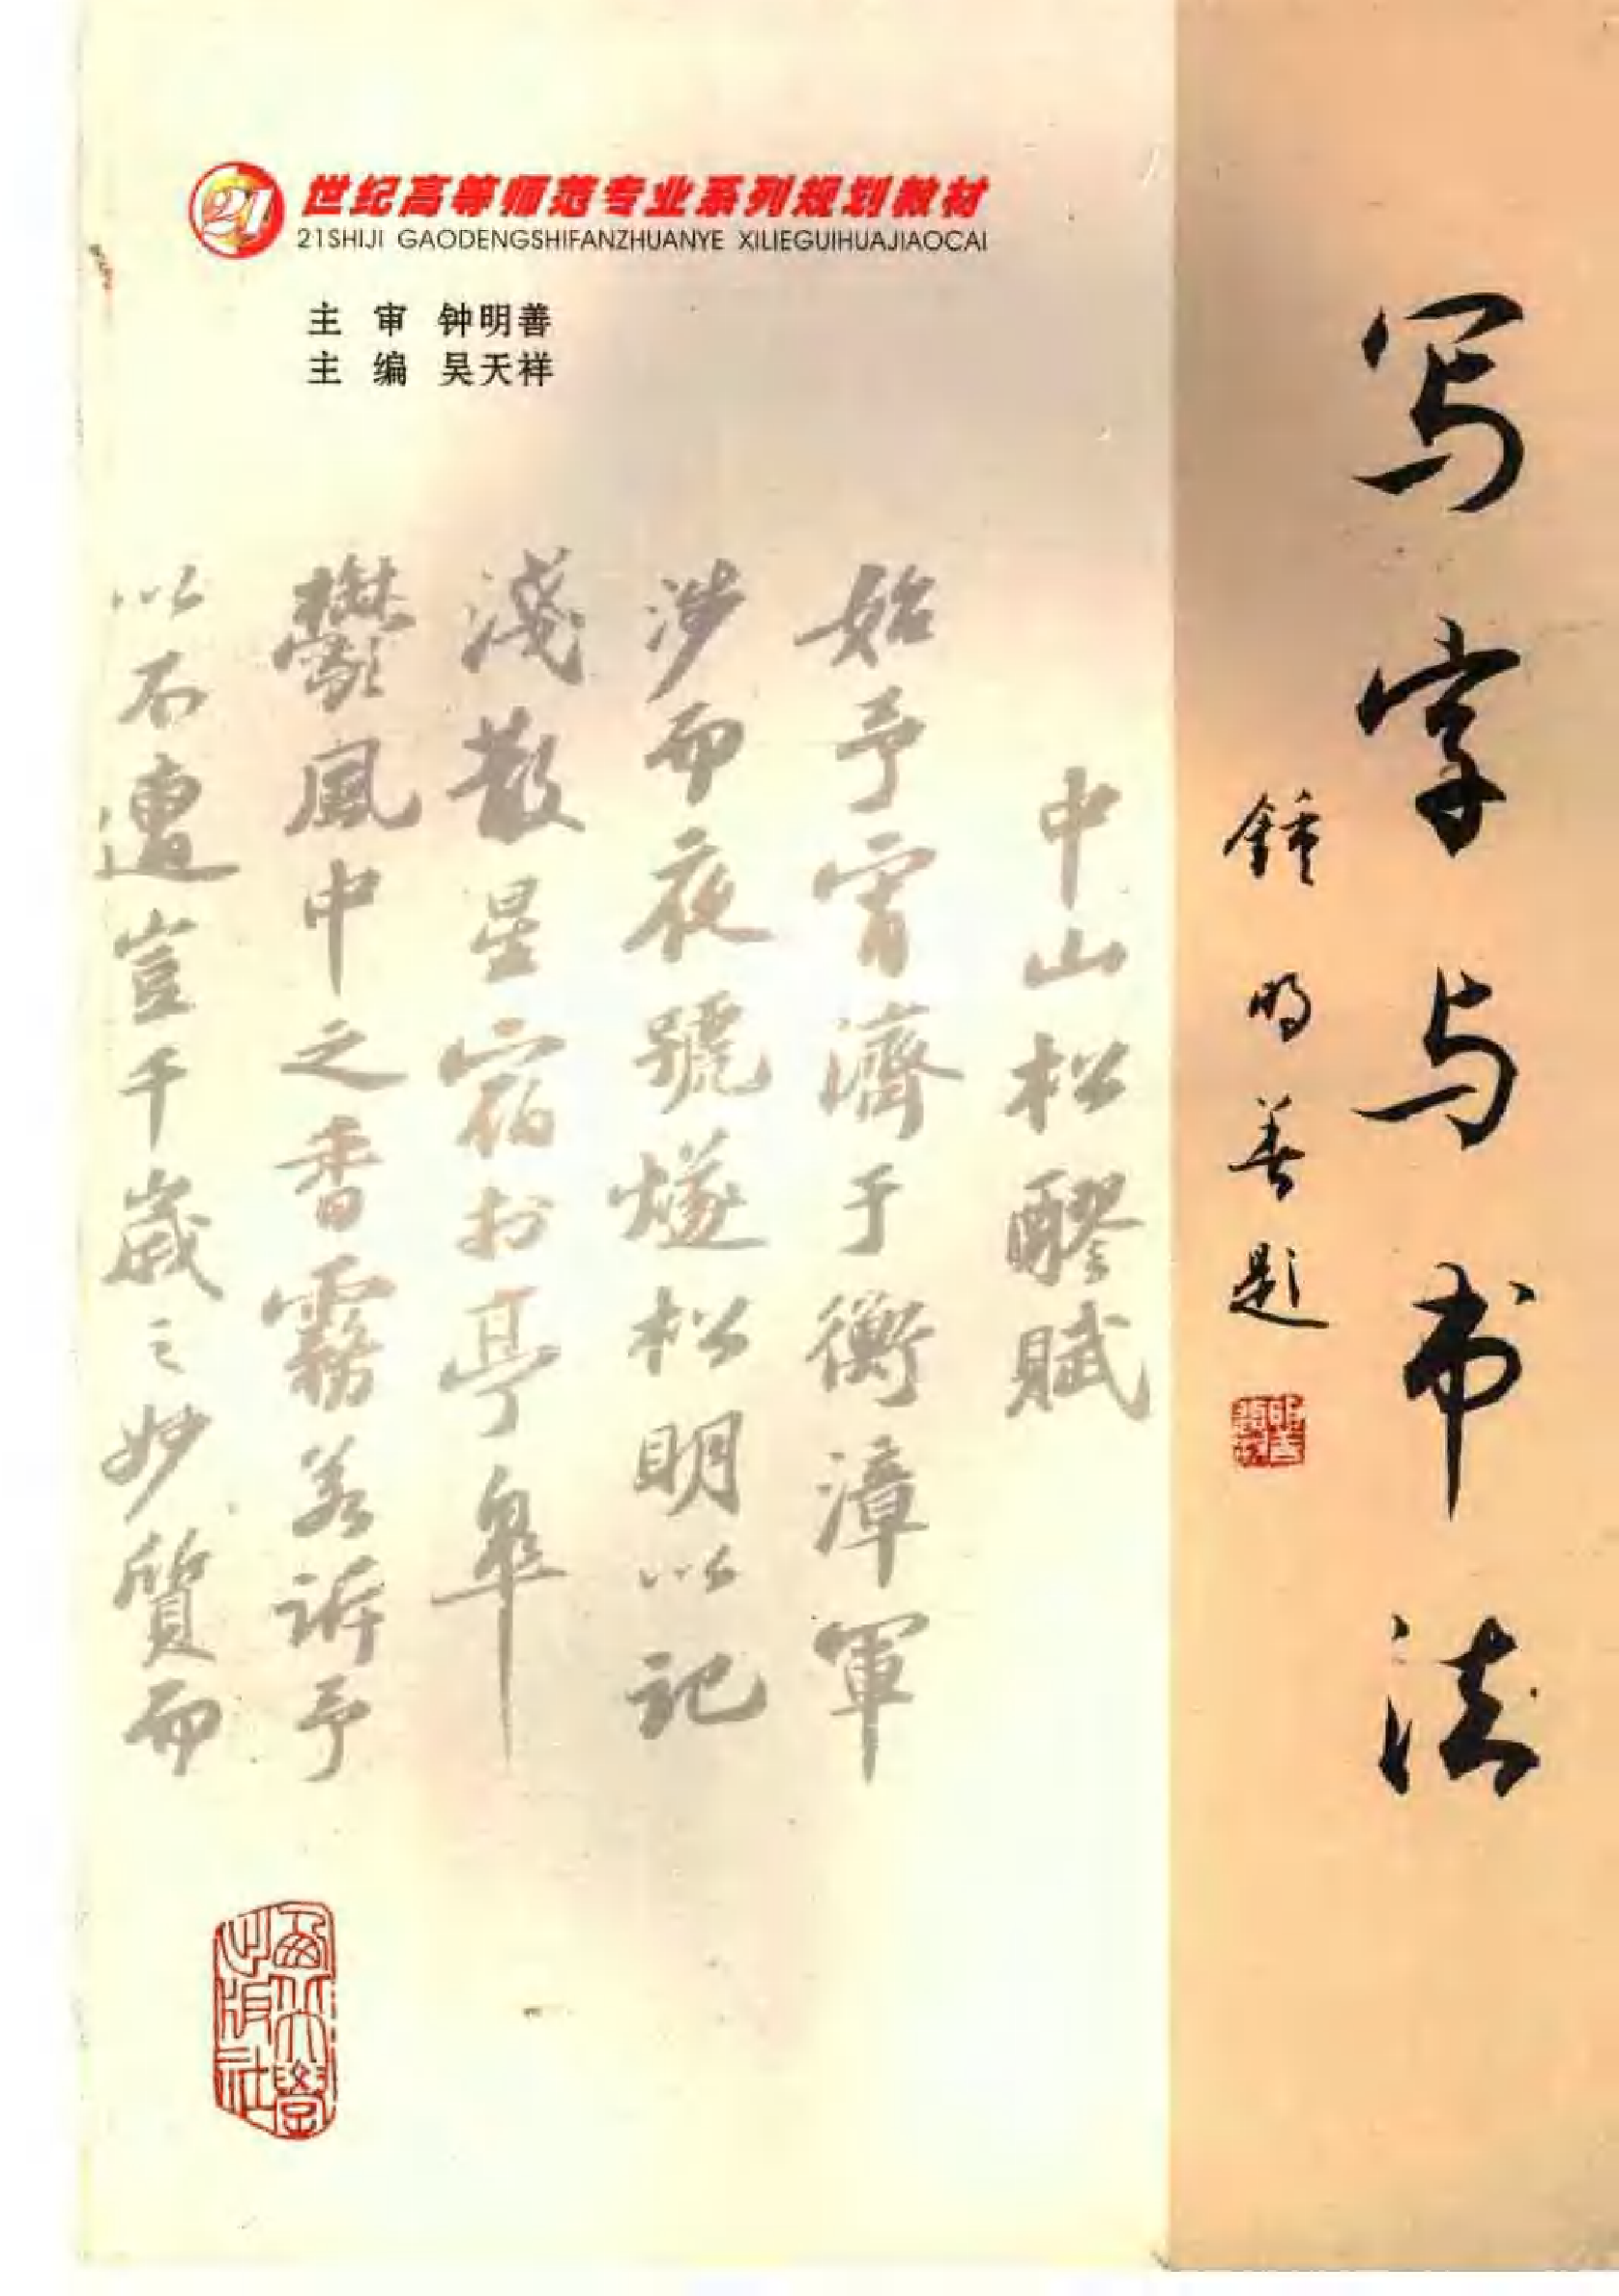 21世纪高等师范专业系列规划教材
21SHIJI GAODENGSHIFANZHUANYE XILIEGUIHUAJIAOCAI
主 审 钟明善
主 编 吴天祥
写字与书法
鍾明善题
中山松醪賦
始予宵濟于衡漳軍
涉而夜號燧松明以記
淺散星宿於亭皋
鬱風中之香霧若訴予
以不遭豈千歲之妙質而
西北大學
出版社